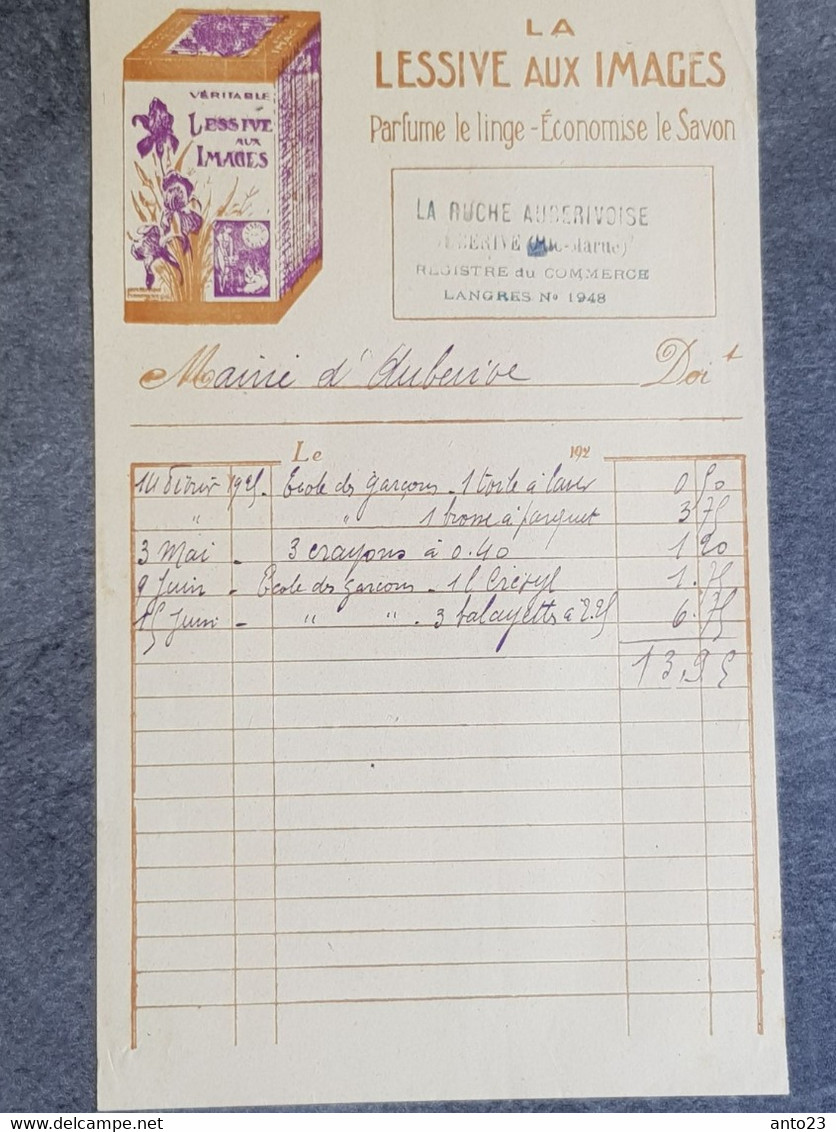 LA
LESSIVE AUX IMAGES
Parfume le linge - Économise le Savon
VÉRITABLE
LESSIVE
AUX
IMAGES
LA RUCHE AUBERIVOISE
(Hte-Marne)
REGISTRE du COMMERCE
LANGRES No 1948
Mairie d'Auberive Doit
Le 192
14 Février 1925. Ecole des garçons - 1 toile à laver 0 50
" " 1 brosse à parquet 3 75
3 Mai - 3 crayons à 0.40 1 20
9 Juin - Ecole des garçons - 1 l Crésyl 1.75
15 Juin - " " - 3 balayettes à 2.25 6.75
13,95
anto23